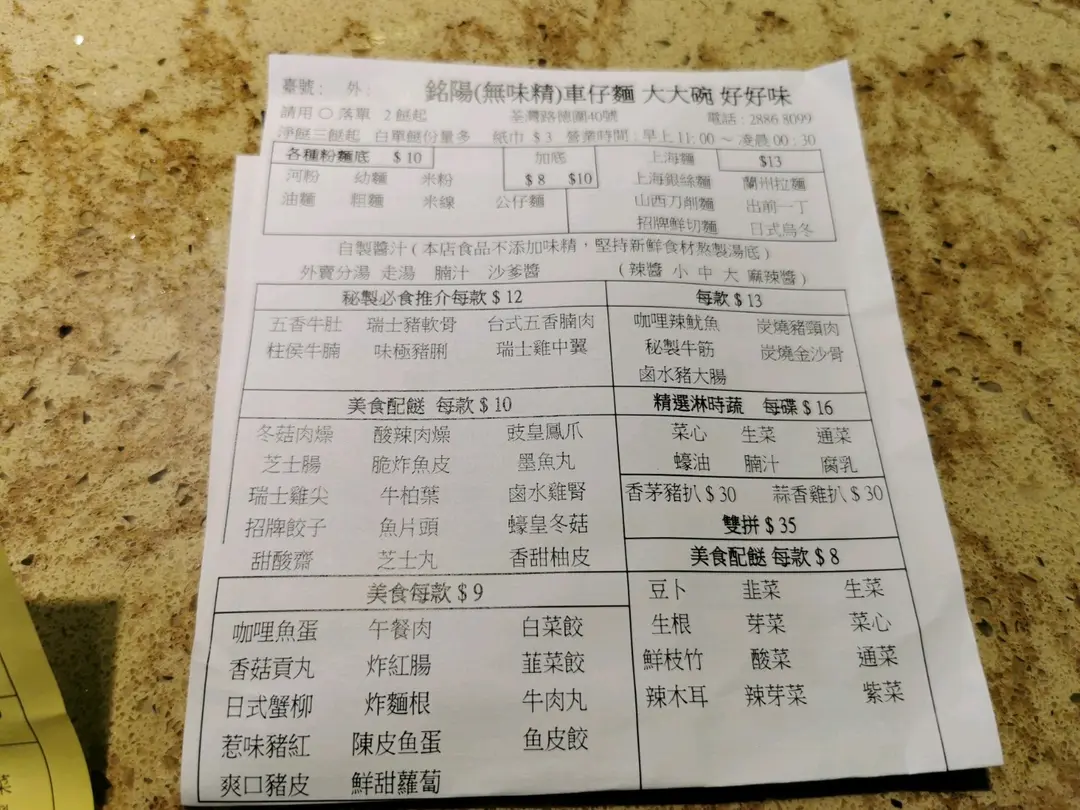 臺號： 外： 銘陽(無味精)車仔麵 大大碗 好好味
請用○落單 2餸起 荃灣路德圍40號 電話：2886 8099
淨餸三餸起 白單餸份量多 紙巾 $ 3 營業時間：早上 11:00 ~ 凌晨 00:30
各種粉麵底 $ 10 加底 上海麵 $13
河粉 幼麵 米粉 $ 8 $10 上海銀絲麵 蘭州拉麵
油麵 粗麵 米線 公仔麵 山西刀削麵 出前一丁
招牌鮮切麵 日式烏冬
自製醬汁 ( 本店食品不添加味精，堅持新鮮食材熬製湯底 )
外賣分湯 走湯 腩汁 沙爹醬 ( 辣醬 小 中 大 麻辣醬 )
秘製必食推介每款 $ 12 每款 $ 13
五香牛肚 瑞士豬軟骨 台式五香腩肉 咖哩辣魷魚 炭燒豬頸肉
柱侯牛腩 味極豬脷 瑞士雞中翼 秘製牛筋 炭燒金沙骨
鹵水豬大腸
美食配餸 每款 $ 10 精選淋時蔬 每碟 $ 16
冬菇肉燥 酸辣肉燥 豉皇鳳爪 菜心 生菜 通菜
芝士腸 脆炸魚皮 墨魚丸 蠔油 腩汁 腐乳
瑞士雞尖 牛柏葉 鹵水雞腎 香茅豬扒 $ 30 蒜香雞扒 $ 30
招牌餃子 魚片頭 蠔皇冬菇 雙拼 $ 35
甜酸齋 芝士丸 香甜柚皮 美食配餸 每款 $ 8
美食每款 $ 9 豆卜 韭菜 生菜
咖哩魚蛋 午餐肉 白菜餃 生根 芽菜 菜心
香菇貢丸 炸紅腸 韮菜餃 鮮枝竹 酸菜 通菜
日式蟹柳 炸麵根 牛肉丸 辣木耳 辣芽菜 紫菜
惹味豬紅 陳皮魚蛋 魚皮餃
爽口豬皮 鮮甜蘿蔔
菜